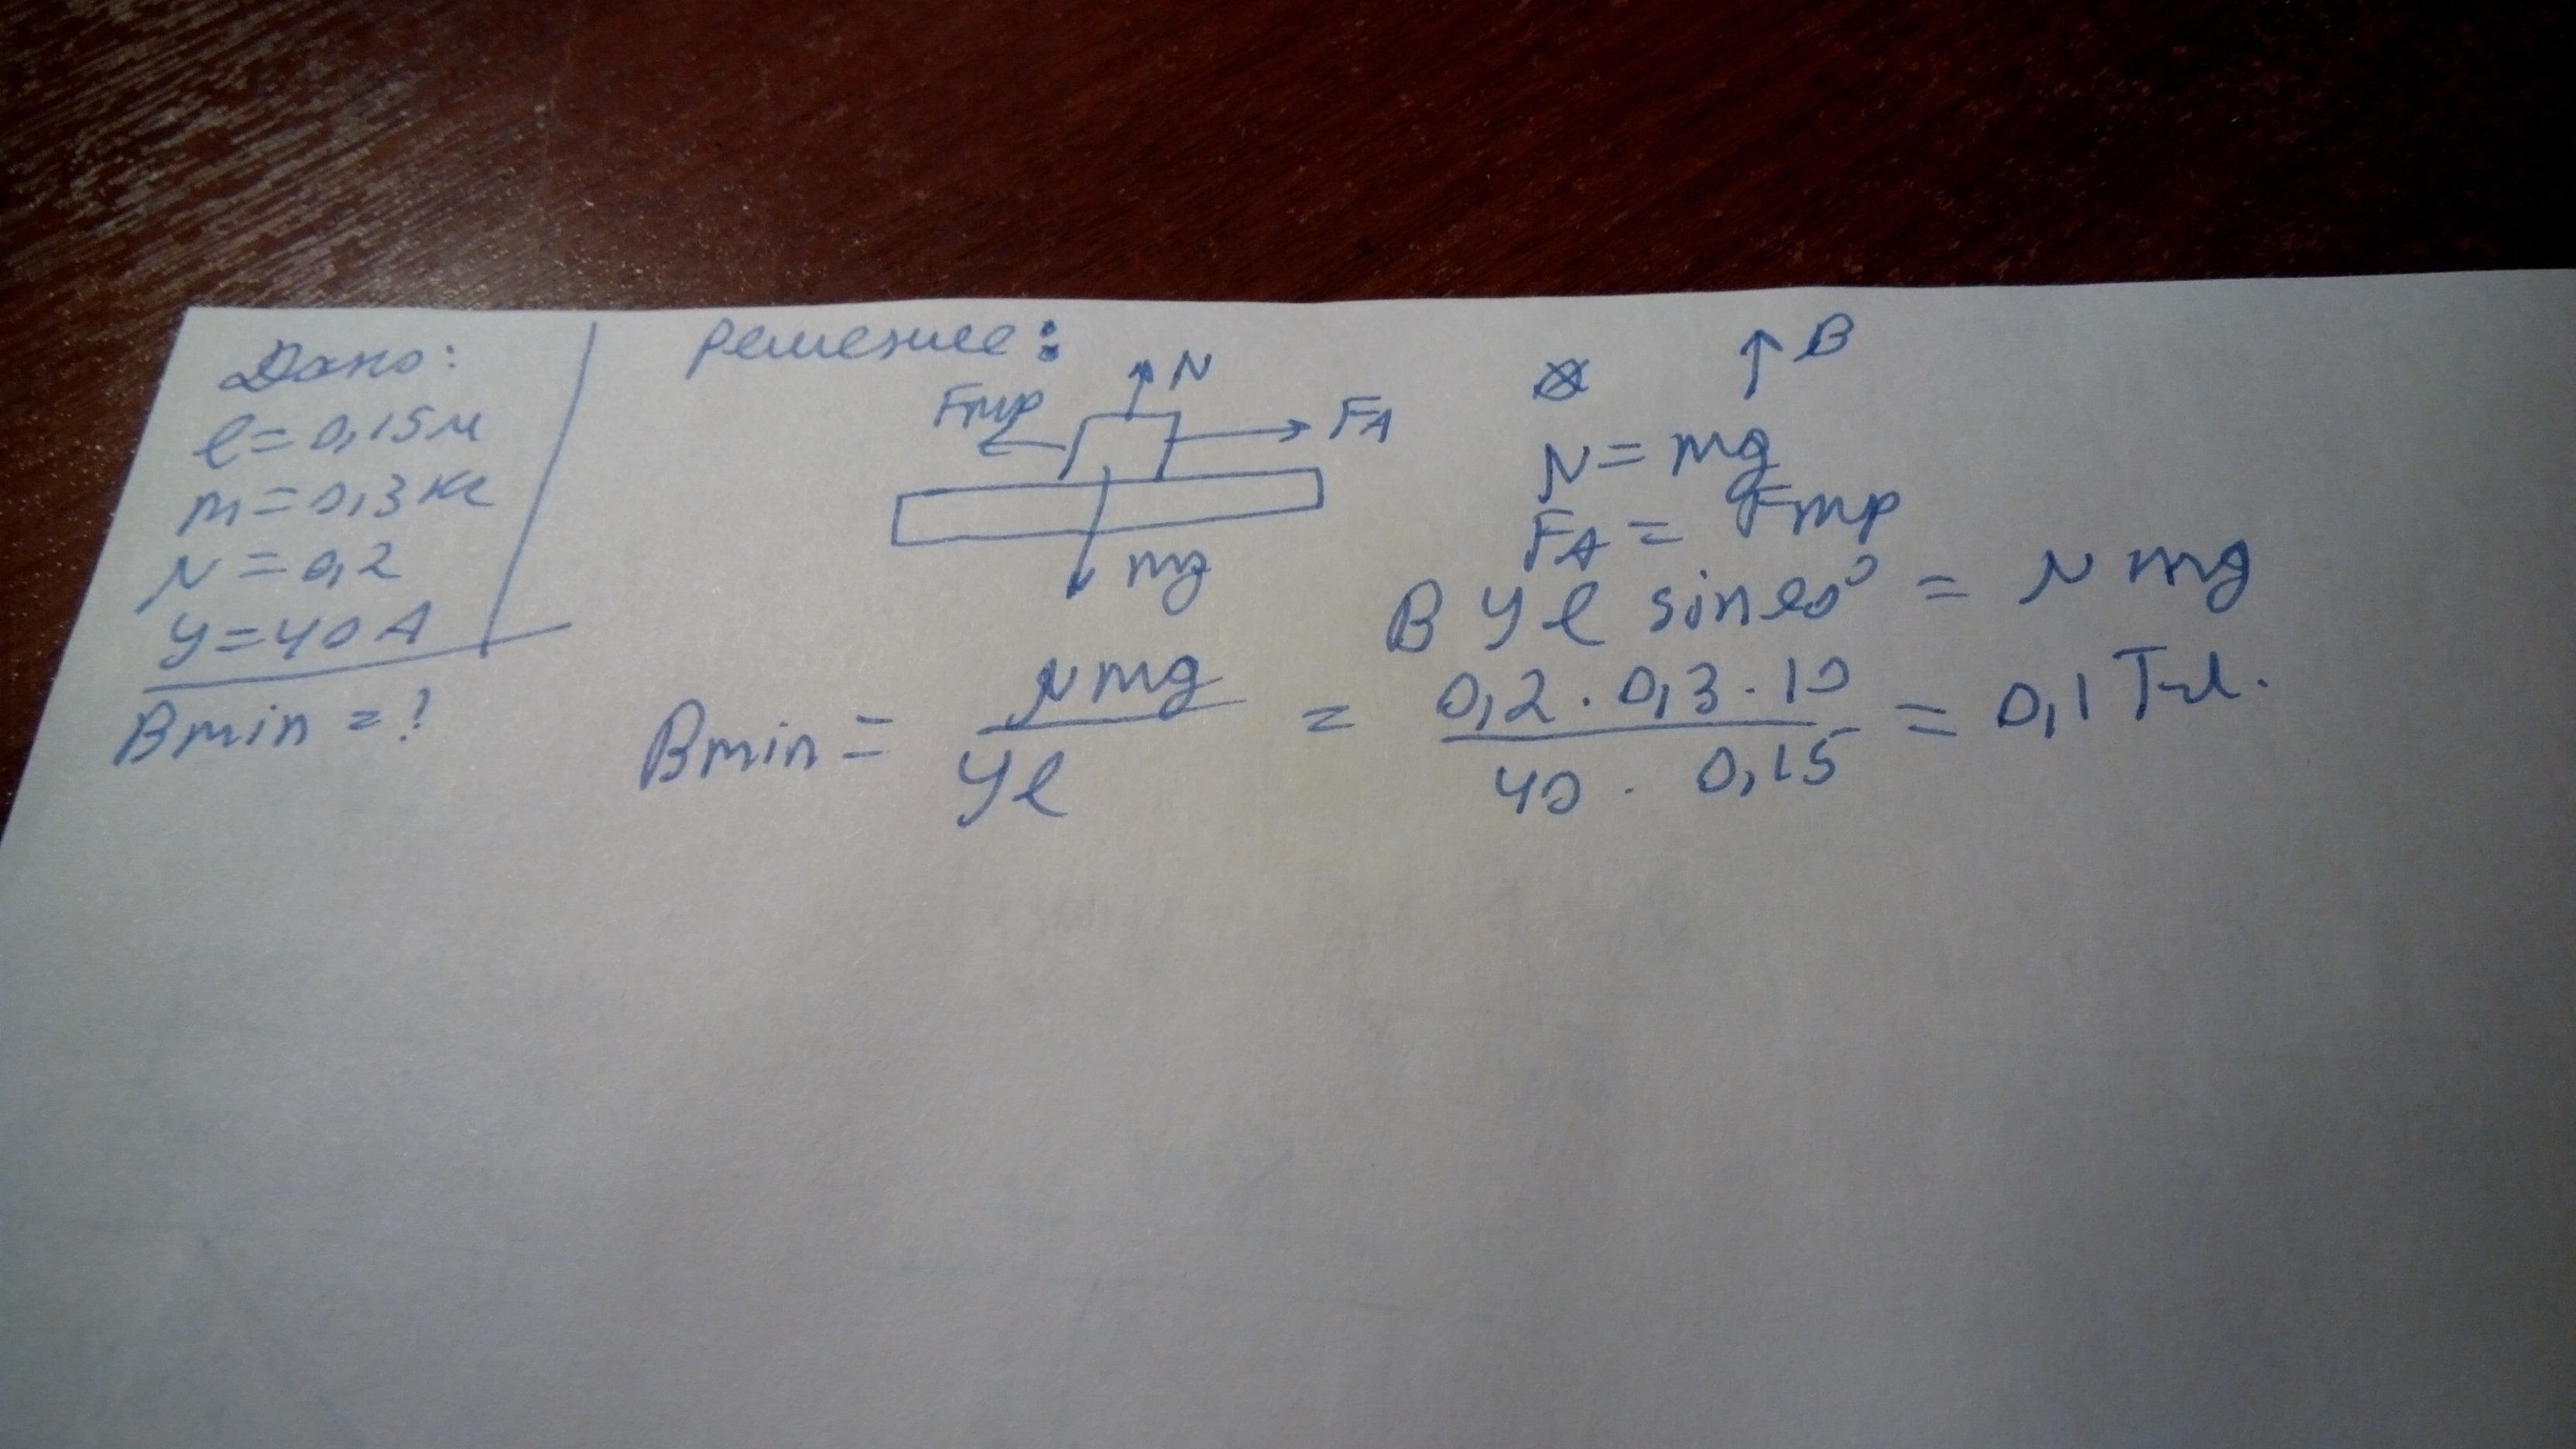 Дано:
l = 0,15 м
m = 0,3 кг
μ = 0,2
У = 40 А
Bmin = ?
решение:
N
Fтр
FA
mg
⊗
B
N = mg
FA = Fтр
B У l sin 90° = μ mg
Bmin = μmg / Уl = 0,2 · 0,3 · 10 / 40 · 0,15 = 0,1 Тл.